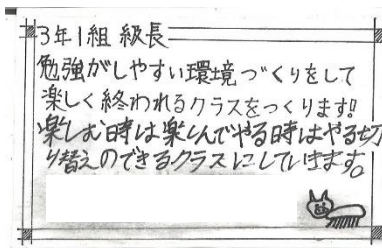 3年1組 級長
勉強がしやすい環境づくりをして
楽しく終われるクラスをつくります!!
楽しむ時は楽しんでやる時はやる切
り替えのできるクラスにしていきます。